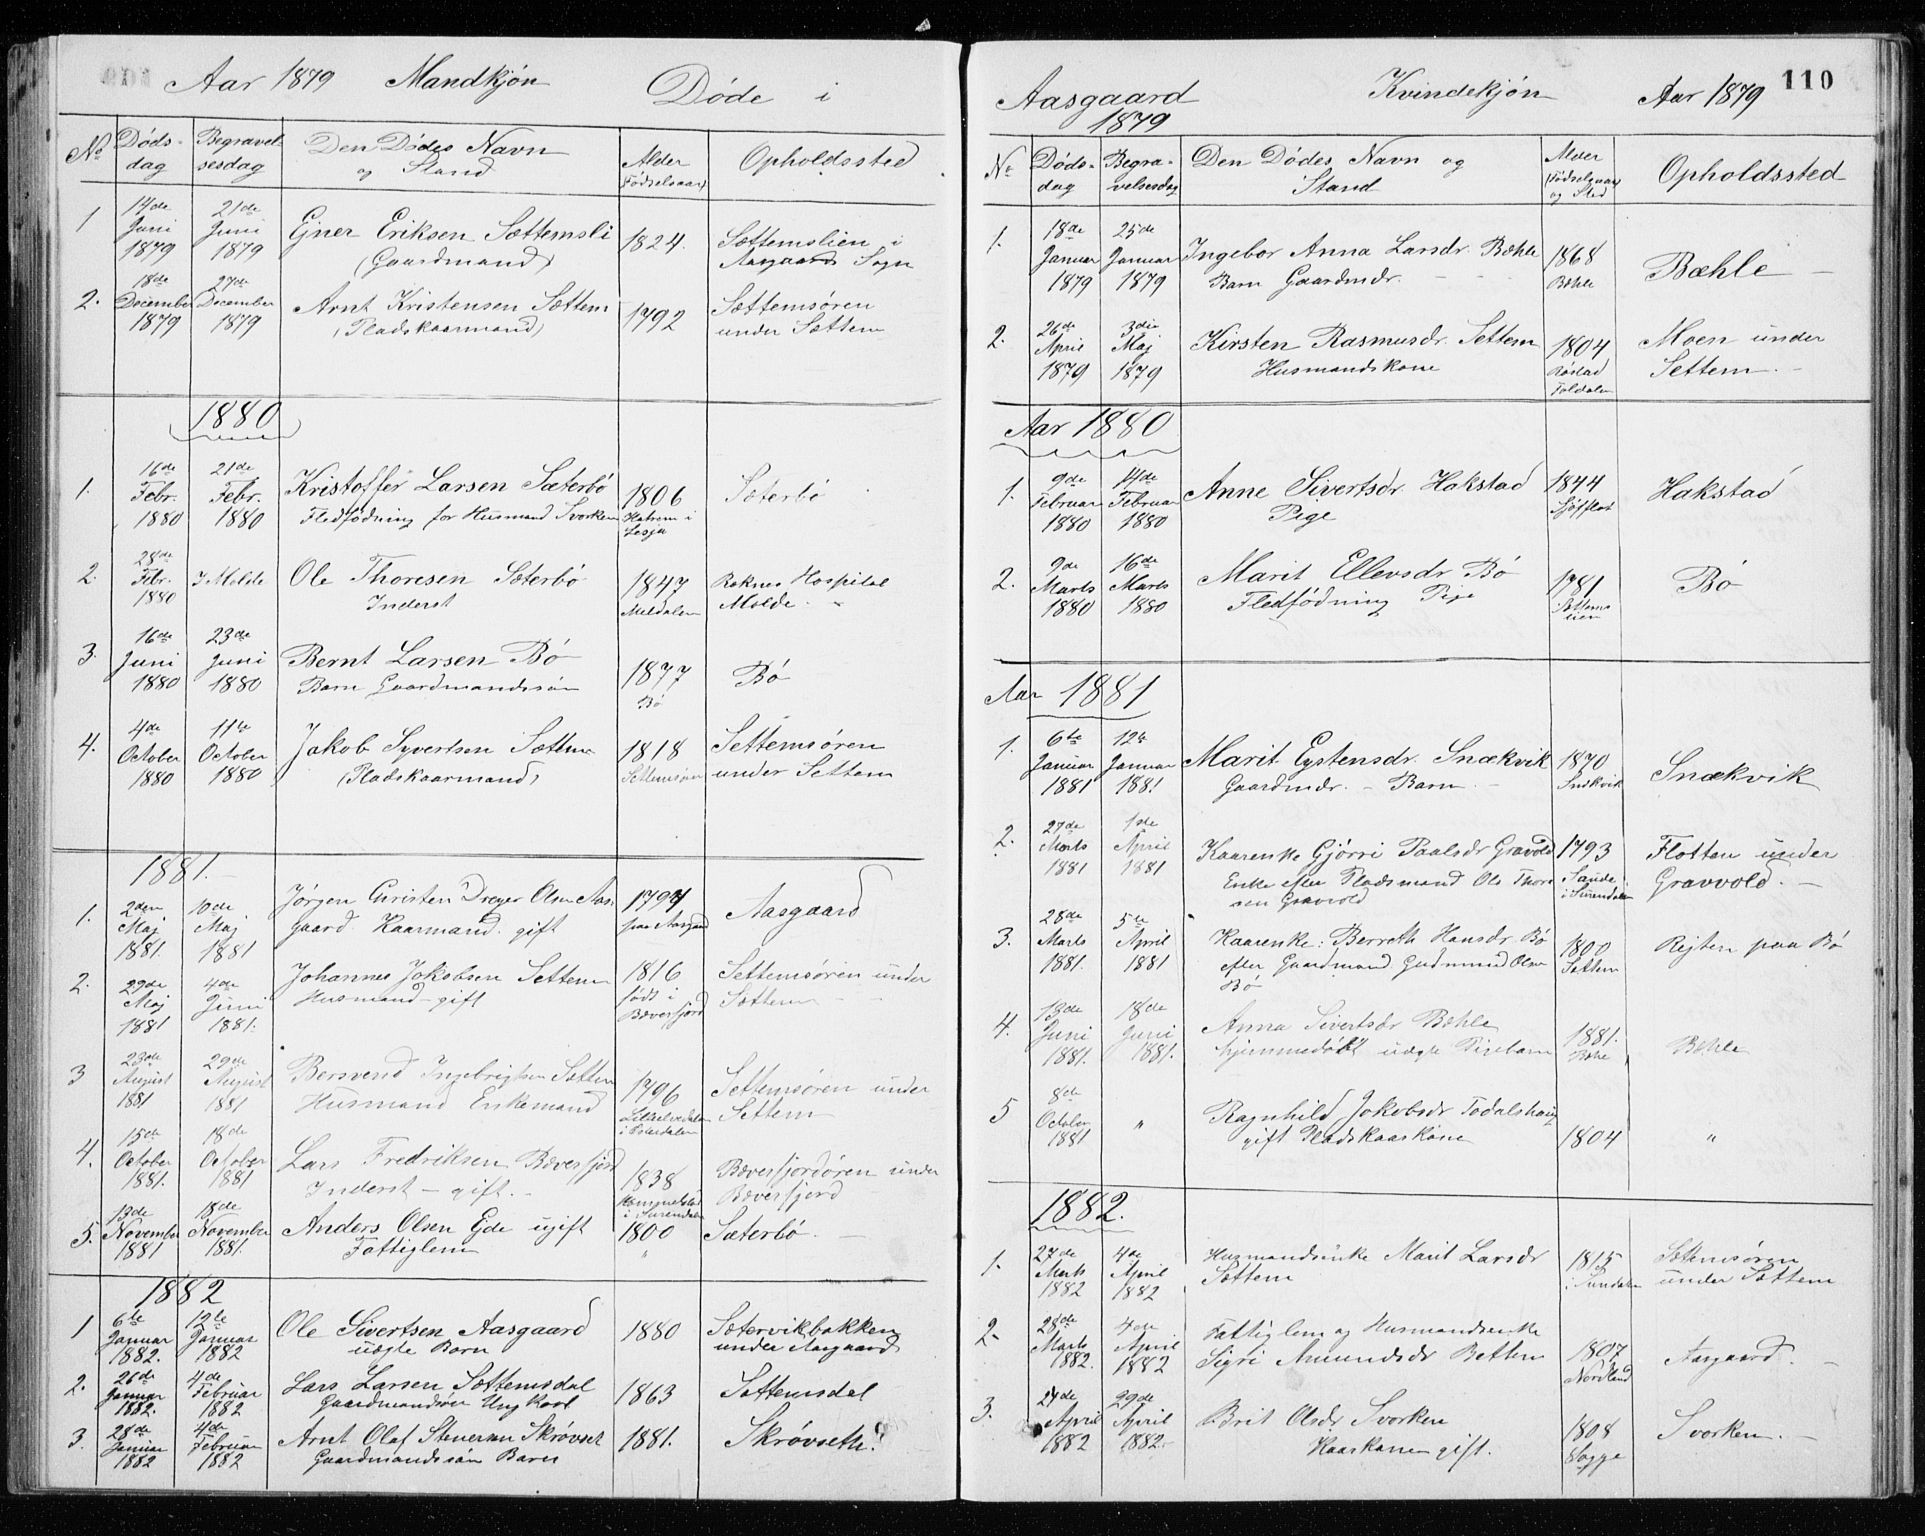 Aar 1879 Mandkjøn Døde i
No Døds-dag Begravelsesdag Den Dødes Navn og Stand Alder (Fødselsaar) Opholdssted
1 14de Juni 1879 21de Juni 1879 Ejner Eriksen Sættemsli (Gaardmand) 1824. Sættemslien i Aasgaards Sogn
2. 18de December 1879 27de December 1879 Arnt Kristensen Sættem (Pladskaarmand) 1792 Sættemsøren under Sættem
1880
1. 16de Febr. 1880 21de Febr. 1880 Kristoffer Larsen Sæterbø Fledfødning for Husmand Svorken 1806 Hatrem i Lesja Sæterbø
2. 28de Febr. 1880 I Molde Ole Thoresen Sæterbø Inderst 1847 Meldalen Reknes Hospital Molde
3. 16de Juni 1880 23de Juni 1880 Bernt Larsen Bø Barn Gaardmandssøn 1877 Bø Bø
4. 4de October 1880 11te October 1880 Jakob Syvertsen Sættem (Pladskaarmand) 1818 Settemsøren Settemsøren under Settem
1881.
1. 2den Maj 1881. 10de Maj 1881 Jørgen Christen Dreyer Olsen Aasgaard Kaarmand gift 1794 paa Aasgaard Aasgaard
2. 29de Maj 1881 4de Juni 1881. Johannes Jakobsen Settem Husmand - gift 1816 født i Bæverfjord Settemsøren under Sættem
3 23de August 1881 29de August 1881 Bersvend Ingebrigtsen Sættem Husmand Enkemand 1796 Lilleelvedalen i Østerdalen Settemsøren under Settem
4. 15de October 1881. 18de October 1881 Lars Fredriksen Bæverfjord Inderst - gift. 1838 i Surendalen Bæverfjordøren under Bæverfjord
5. 13de November 1881 18de November 1881. Anders Olsen Eide ugift Fattiglem 1800 " Sæterbø.
1882
1 6te Januar 1882. 12te Januar 1882 Ole Sivertsen Aasgaard uægte Barn 1880 Sætervikbakken under Aasgaard
2. 26de Januar 1882. 4de Februar 1882 Lars Larsen Sættemsdal Gaardmandssøn Ung Karl 1863 Sættemsdal
3. 28de Januar 1882 4de Februar 1882 Arnt Olaf Stenersen Skrøvset Gaardmandssøn Barn 1881. Skrøvseth.
Aasgaard 1879 Kvindekjøn Aar 1879 110
No Døds-dag Begravelsesdag Den Dødes Navn og Stand Alder (Fødselsaar) og Sted Opholdssted
1. 18de Januar 1879 25de Januar 1879 Ingebor Anna Larsdr. Bæhle Barn Gaardmdr. 1868 Bæhle Bæhle
2. 26de April 1879 3die Maj 1879 Kirsten Rasmusdr. Settem Husmandskone 1804 Foldalen Moen under Settem.
Aar 1880
1. 9de Februar 1880 14de Februar 1880 Anne Sivertsdr. Hakstad Pige 1844 Sjøflot Hakstad
2. 9de Marts 1880 16de Marts 1880 Marit Ellevsdr Bø Fledfødning Pige 1781 Settemslien Bø
Aar 1881
1. 6te Januar 1881 12te Januar 1881 Marit Eystensdr. Snækvik Gaardmdr. - Barn 1870 Snækvik Snækvik
2. 27de Marts 1881 1ste April 1881 Kaarenke Gjørri Paalsdr Gravvold Enke efter Pladsmand Ole Thoresen Gravvold 1793 Sande i Surendalen Flotten under Gravvold.
3. 28de Marts 1881. 5te April 1881 Kaarenke: Berreth Hansdr. Bø efter Gaardmand Gudmund Olsen Bø 1800 Settem Rejten paa Bø
4. 13de Juni 1881. 18de Juni 1881. Anna Sivertsdr Bæhle hjemmedøbt uægte Pigebarn 1881. Bæhle Bæhle
5 8de October 1881 " Ragnhild Jakobsdr Todalshaug gift Pladskaarkone 1804 "
1882.
1. 27de Marts 1882 4de April 1882 Husmandsenke Marit Larsdr Sættem 1815 i Sundalen Sættemsøren under Sættem
2. 28de Marts 1882. 4de April 1882 Fattiglem og Husmandsenke Sigri Amundsdr Betten 1807 Nordland Aasgaard.
3. 24de April 1882 29de April 1882. Brit Olsdr Svorken Kaarkone gift. 1808 Bøgge Svorken.